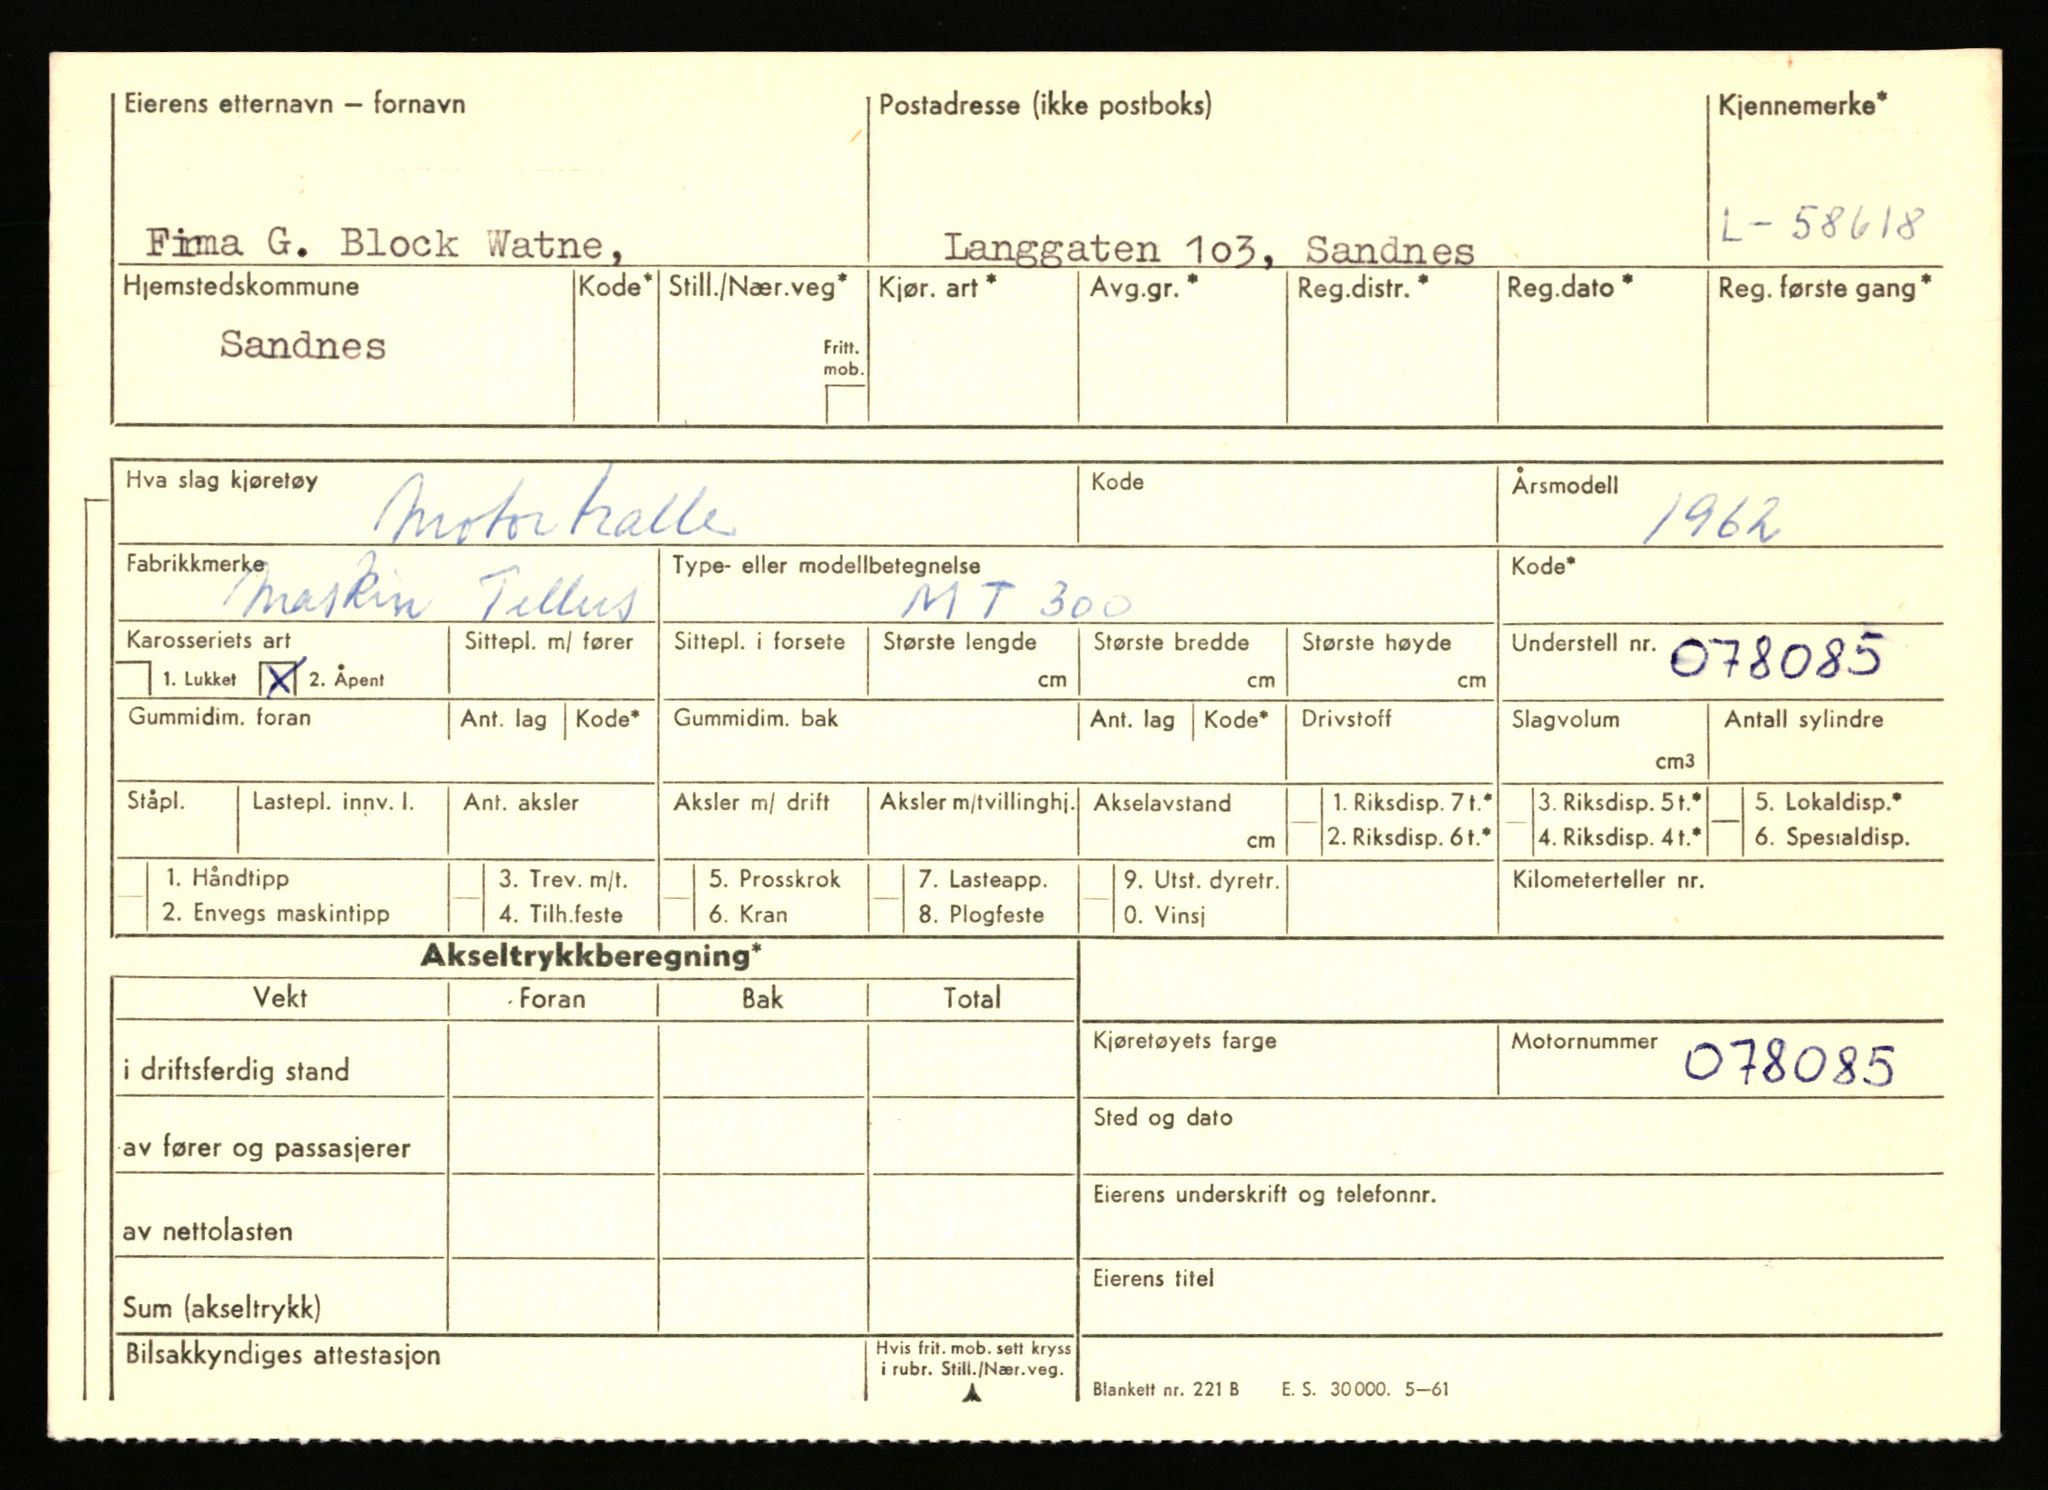 Eierens etternavn – fornavn Postadresse (ikke postboks) Kjennemerke*
Firma G. Block Watne, Langgaten 1o3, Sandnes L - 58618
Hjemstedskommune Kode* Still./Nær.veg* Kjør. art* Avg.gr.* Reg.distr.* Reg.dato* Reg. første gang*
Sandnes Fritt.
mob.
Hva slag kjøretøy Motortralle Kode Årsmodell 1962
Fabrikkmerke Maskin Tellus Type- eller modellbetegnelse MT 300 Kode*
Karosseriets art Sittepl. m/ fører Sittepl. i forsete Største lengde Største bredde Største høyde Understell nr. 078085
1. Lukket X 2. Åpent cm cm cm
Gummidim. foran Ant. lag Kode* Gummidim. bak Ant. lag Kode* Drivstoff Slagvolum Antall sylindre
cm3
Ståpl. Lastepl. innv. l. Ant. aksler Aksler m/ drift Aksler m/tvillinghj. Akselavstand 1. Riksdisp. 7 t.* 3. Riksdisp. 5 t.* 5. Lokaldisp.*
cm 2. Riksdisp. 6 t.* 4. Riksdisp. 4 t.* 6. Spesialdisp.
1. Håndtipp 3. Trev. m/t. 5. Prosskrok 7. Lasteapp. 9. Utst. dyretr. Kilometerteller nr.
2. Envegs maskintipp 4. Tilh.feste 6. Kran 8. Plogfeste 0. Vinsj
Akseltrykkberegning*
Vekt Foran Bak Total
Kjøretøyets farge Motornummer 078085
i driftsferdig stand
Sted og dato
av fører og passasjerer
Eierens underskrift og telefonnr.
av nettolasten
Eierens titel
Sum (akseltrykk)
Bilsakkyndiges attestasjon Hvis frit. mob. sett kryss
i rubr. Still./Nær.veg.
Blankett nr. 221 B E. S. 30000. 5–61